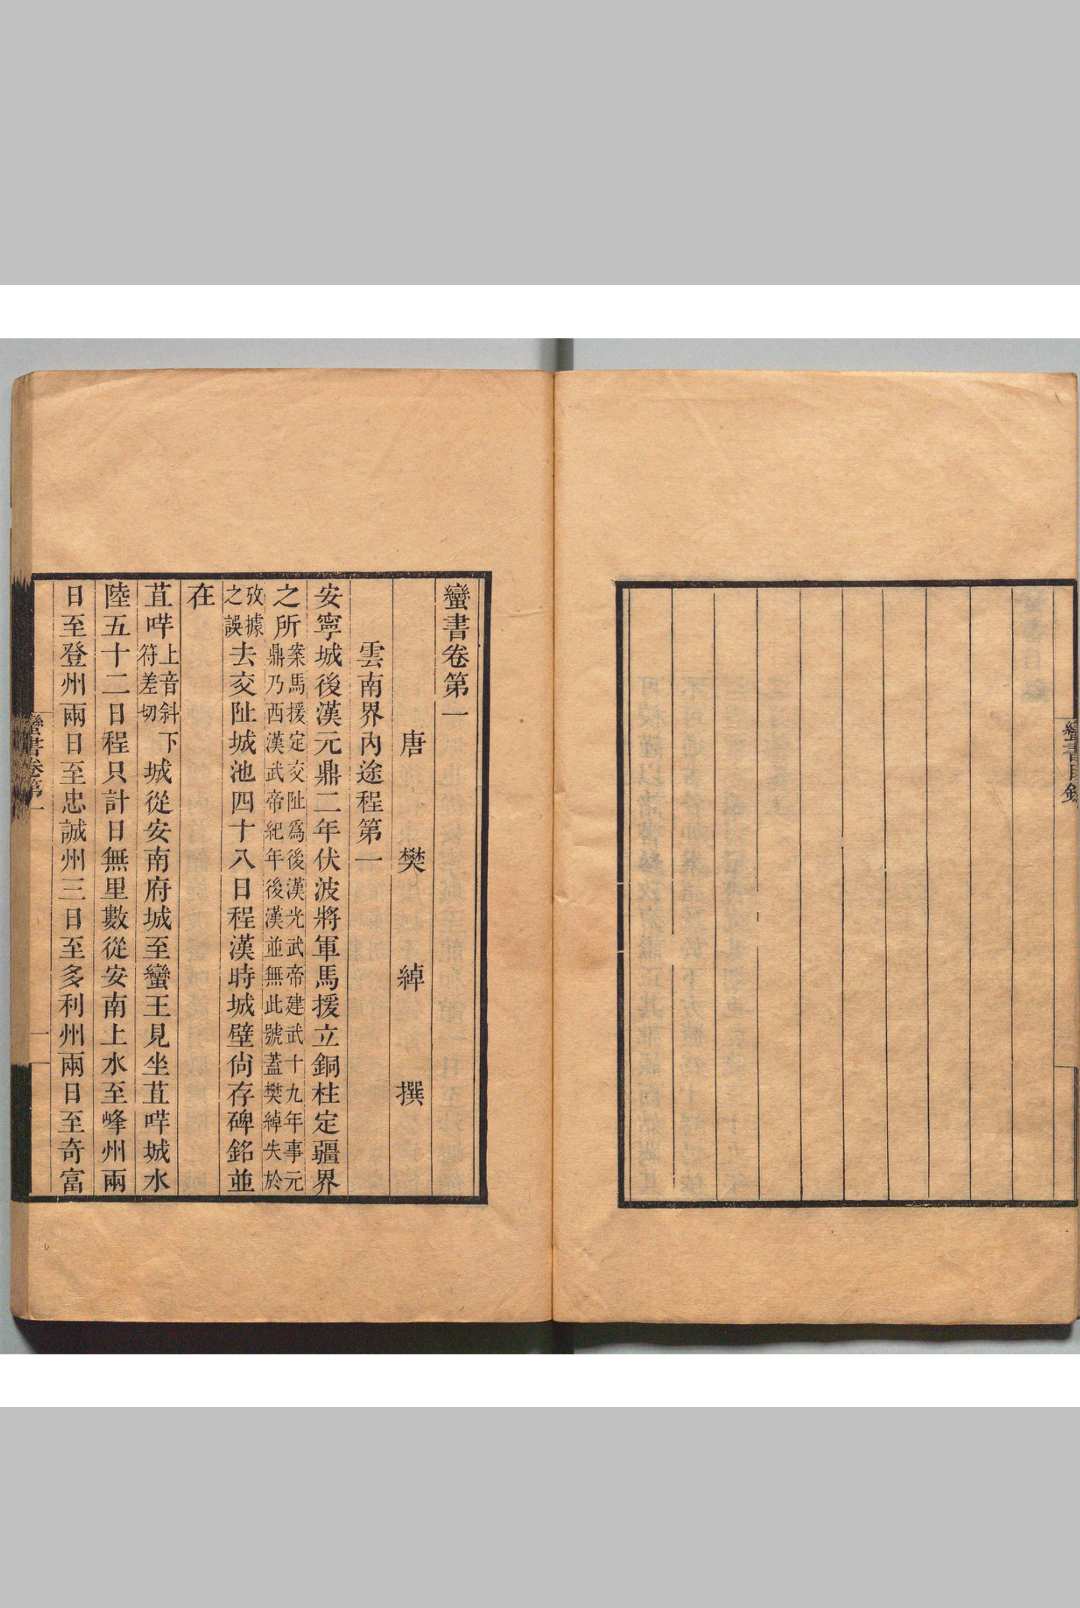 蠻書目錄
蠻書卷第一
唐樊綽撰
雲南界內途程第一
安寧城後漢元鼎二年伏波將軍馬援立銅柱定疆界
之所案馬援定交阯爲後漢光武帝建武十九年事元鼎乃西漢武帝紀年後漢並無此號蓋樊綽失於
攷據之誤去交阯城池四十八日程漢時城壁尙存碑銘並
在
苴哶上音斜下符差切城從安南府城至蠻王見坐苴哶城水
陸五十二日程只計日無里數從安南上水至峰州兩
日至登州兩日至忠誠州三日至多利州兩日至奇富
蠻書卷第一
一